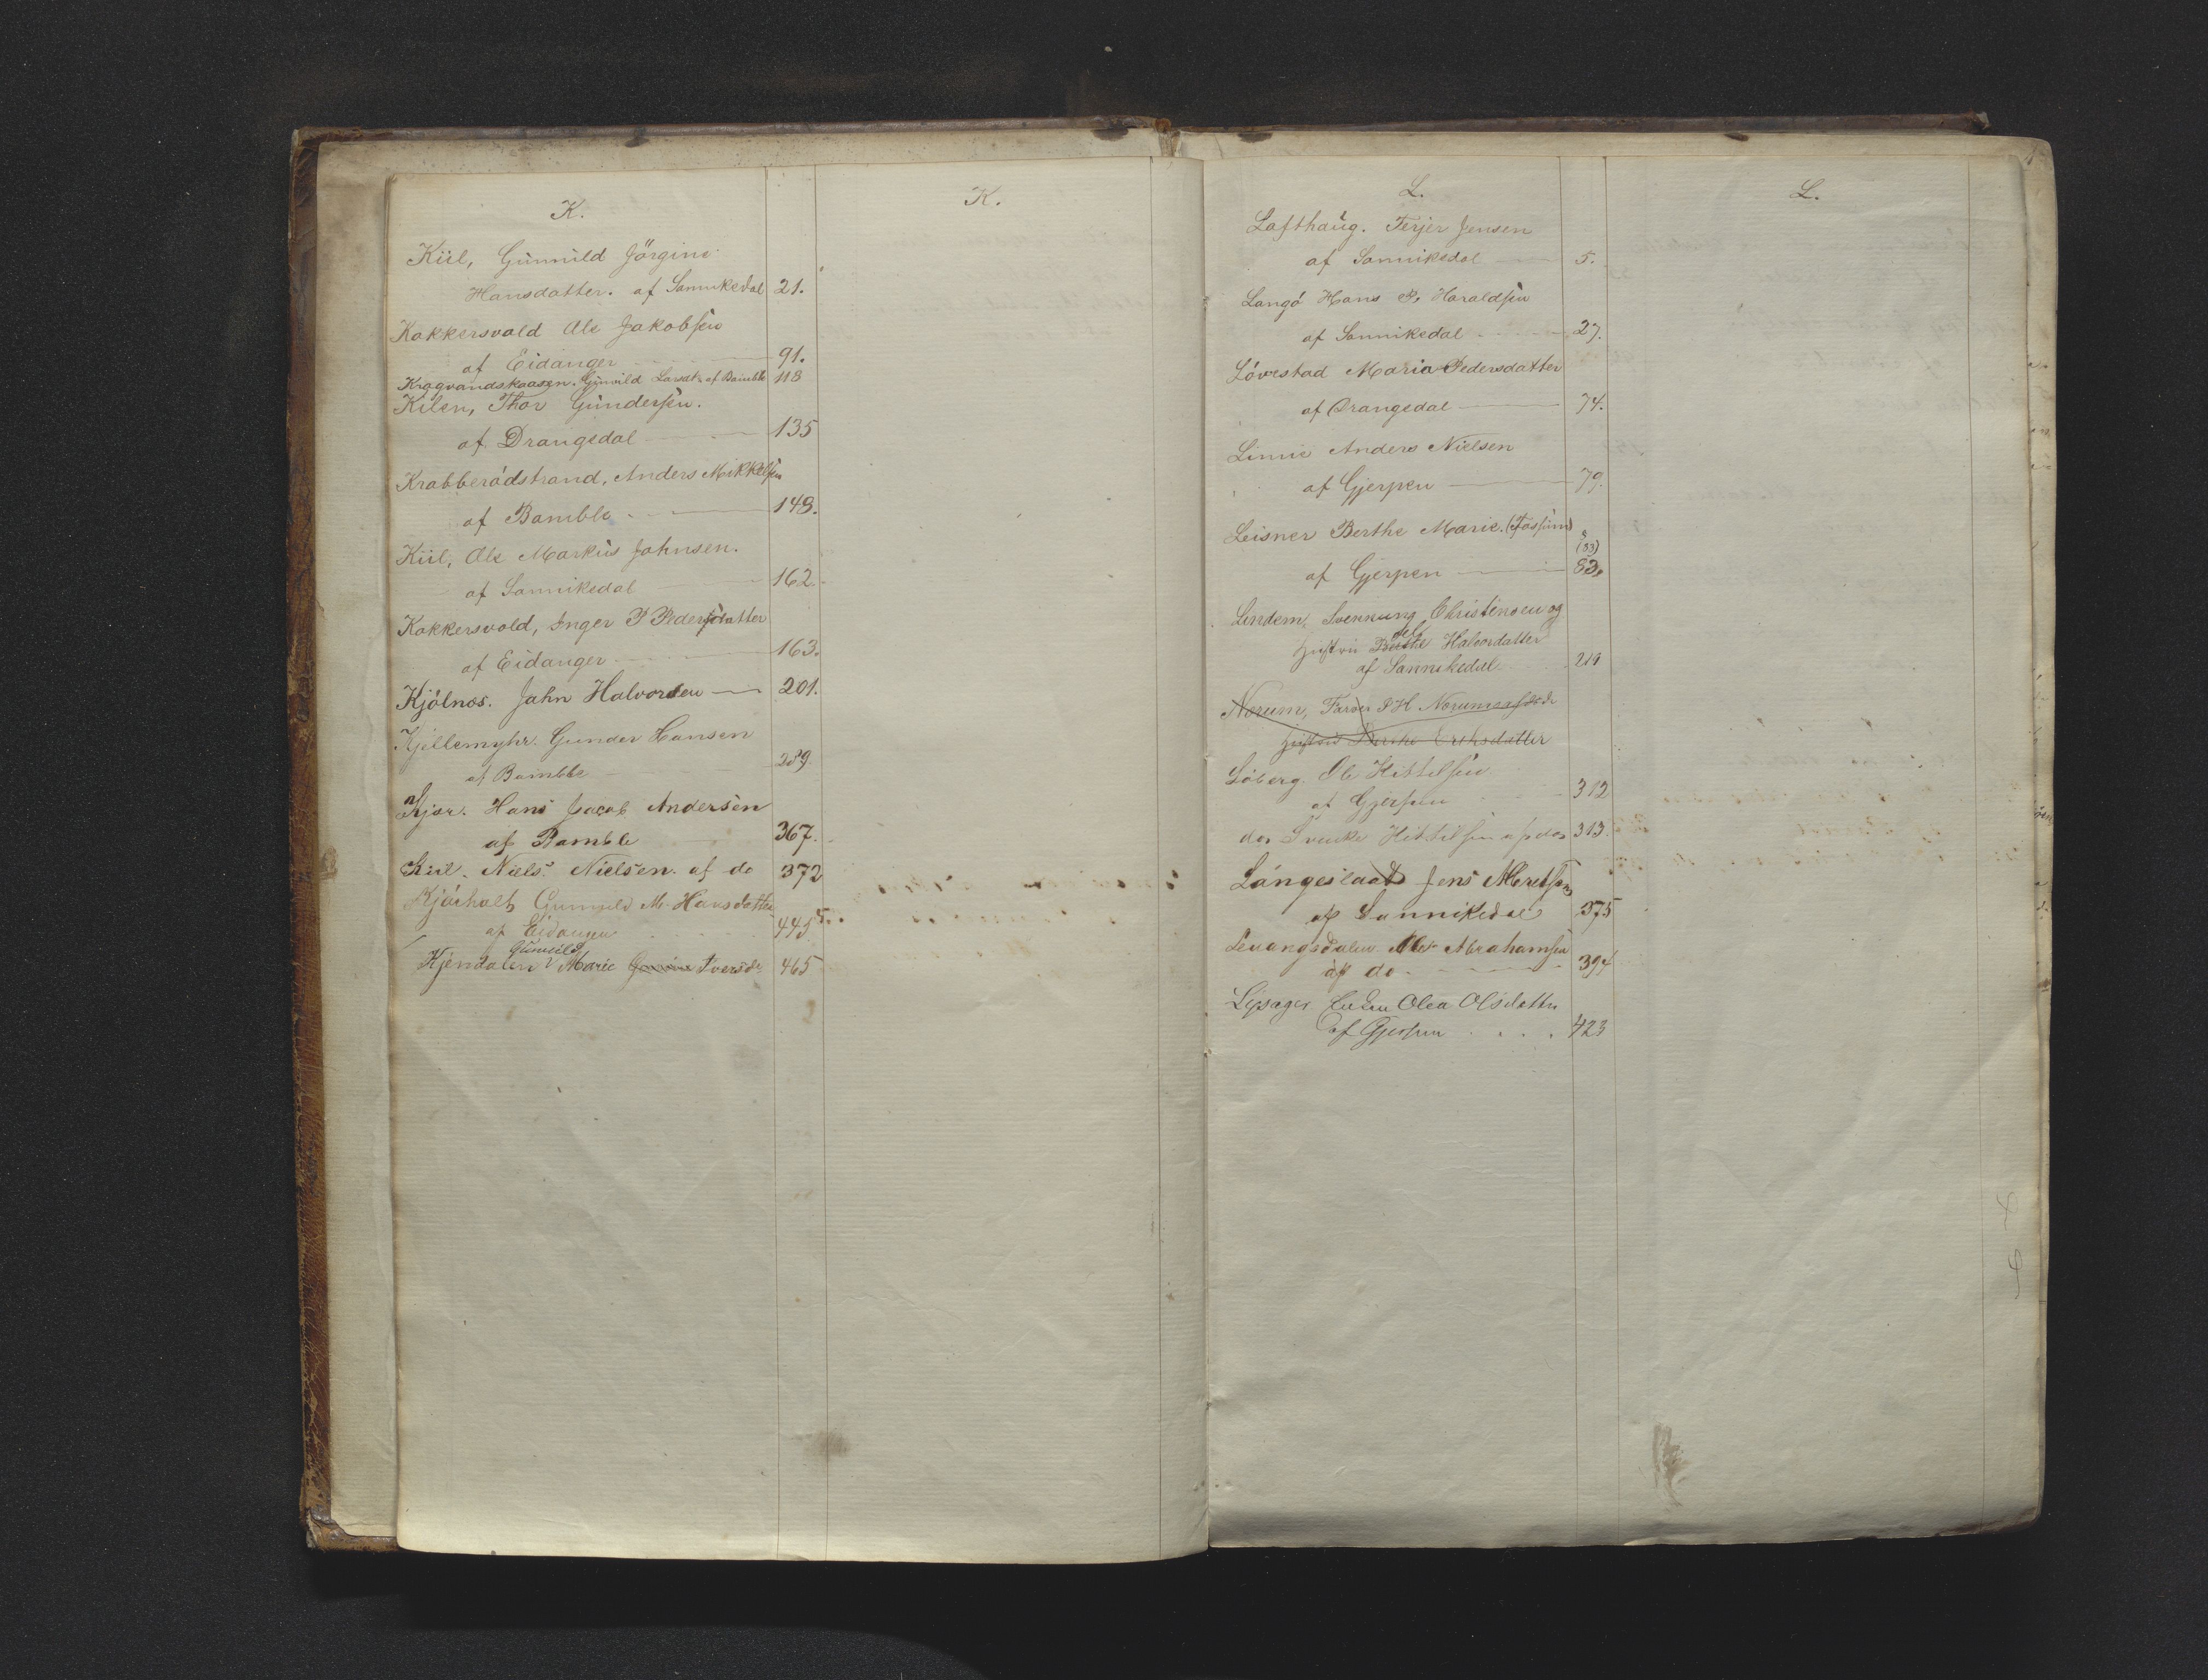 K.
Kiil, Gunnild Jörgine
Hansdatter. af Sannikedal 21.
Kokkersvold Ole Jakobsen
af Eidanger 91.
Kragvandskaasen. Gunild Larsdt. af Bamble 118
Kilen, Thor Gundersen.
af Drangedal 135
Krabberödstrand, Anders Mikkelsen
af Bamble 148.
Kiil, Ole Markus Johnsen.
af Sannikedal 162.
Kokkersvold, Inger P Pedersdatter
af Eidanger 163.
Kjölnos. John Halvorsen 201.
Kjellemyhr. Gunder Hansen
af Bamble 289.
Kjær. Hans Jacob Andersen
af Bamble 367.
Kiil. Niels Nielsen. af do 372
Kjörholt Gunnild M. Hansdatter
af Eidanger 445
Gunild
Kjendalen Marie Iversd. 465
K.
L.
Lofthaug. Terjer Jensen
af Sannikedal 5.
Langö Hans P. Haraldsen
af Sannikedal 27.
Lövestad Maria Pedersdatter
af Drangedal 74.
Limie Anders Nielsen
af Gjerpen 79.
Leisner Berthe Marie. (Fossum)
(83)
af Gjerpen 83.
Lindem, Svennung Christensen og
Hustru Halvordatter
af Sannikedal 219
Norum, Farver P H Norum og
Hustru Berthe Eriksdatter
Löberg. Ole Kittelsen
af Gjerpen 312
do. Svenke Kittilsen af do. 313.
Langeslaat Jens Albretsen
af Sannikedal 375
Levangsdalen Ole Abrahamsen
af do 394
Lysager Olea Olsdatter
af Gjerpen 423
L.